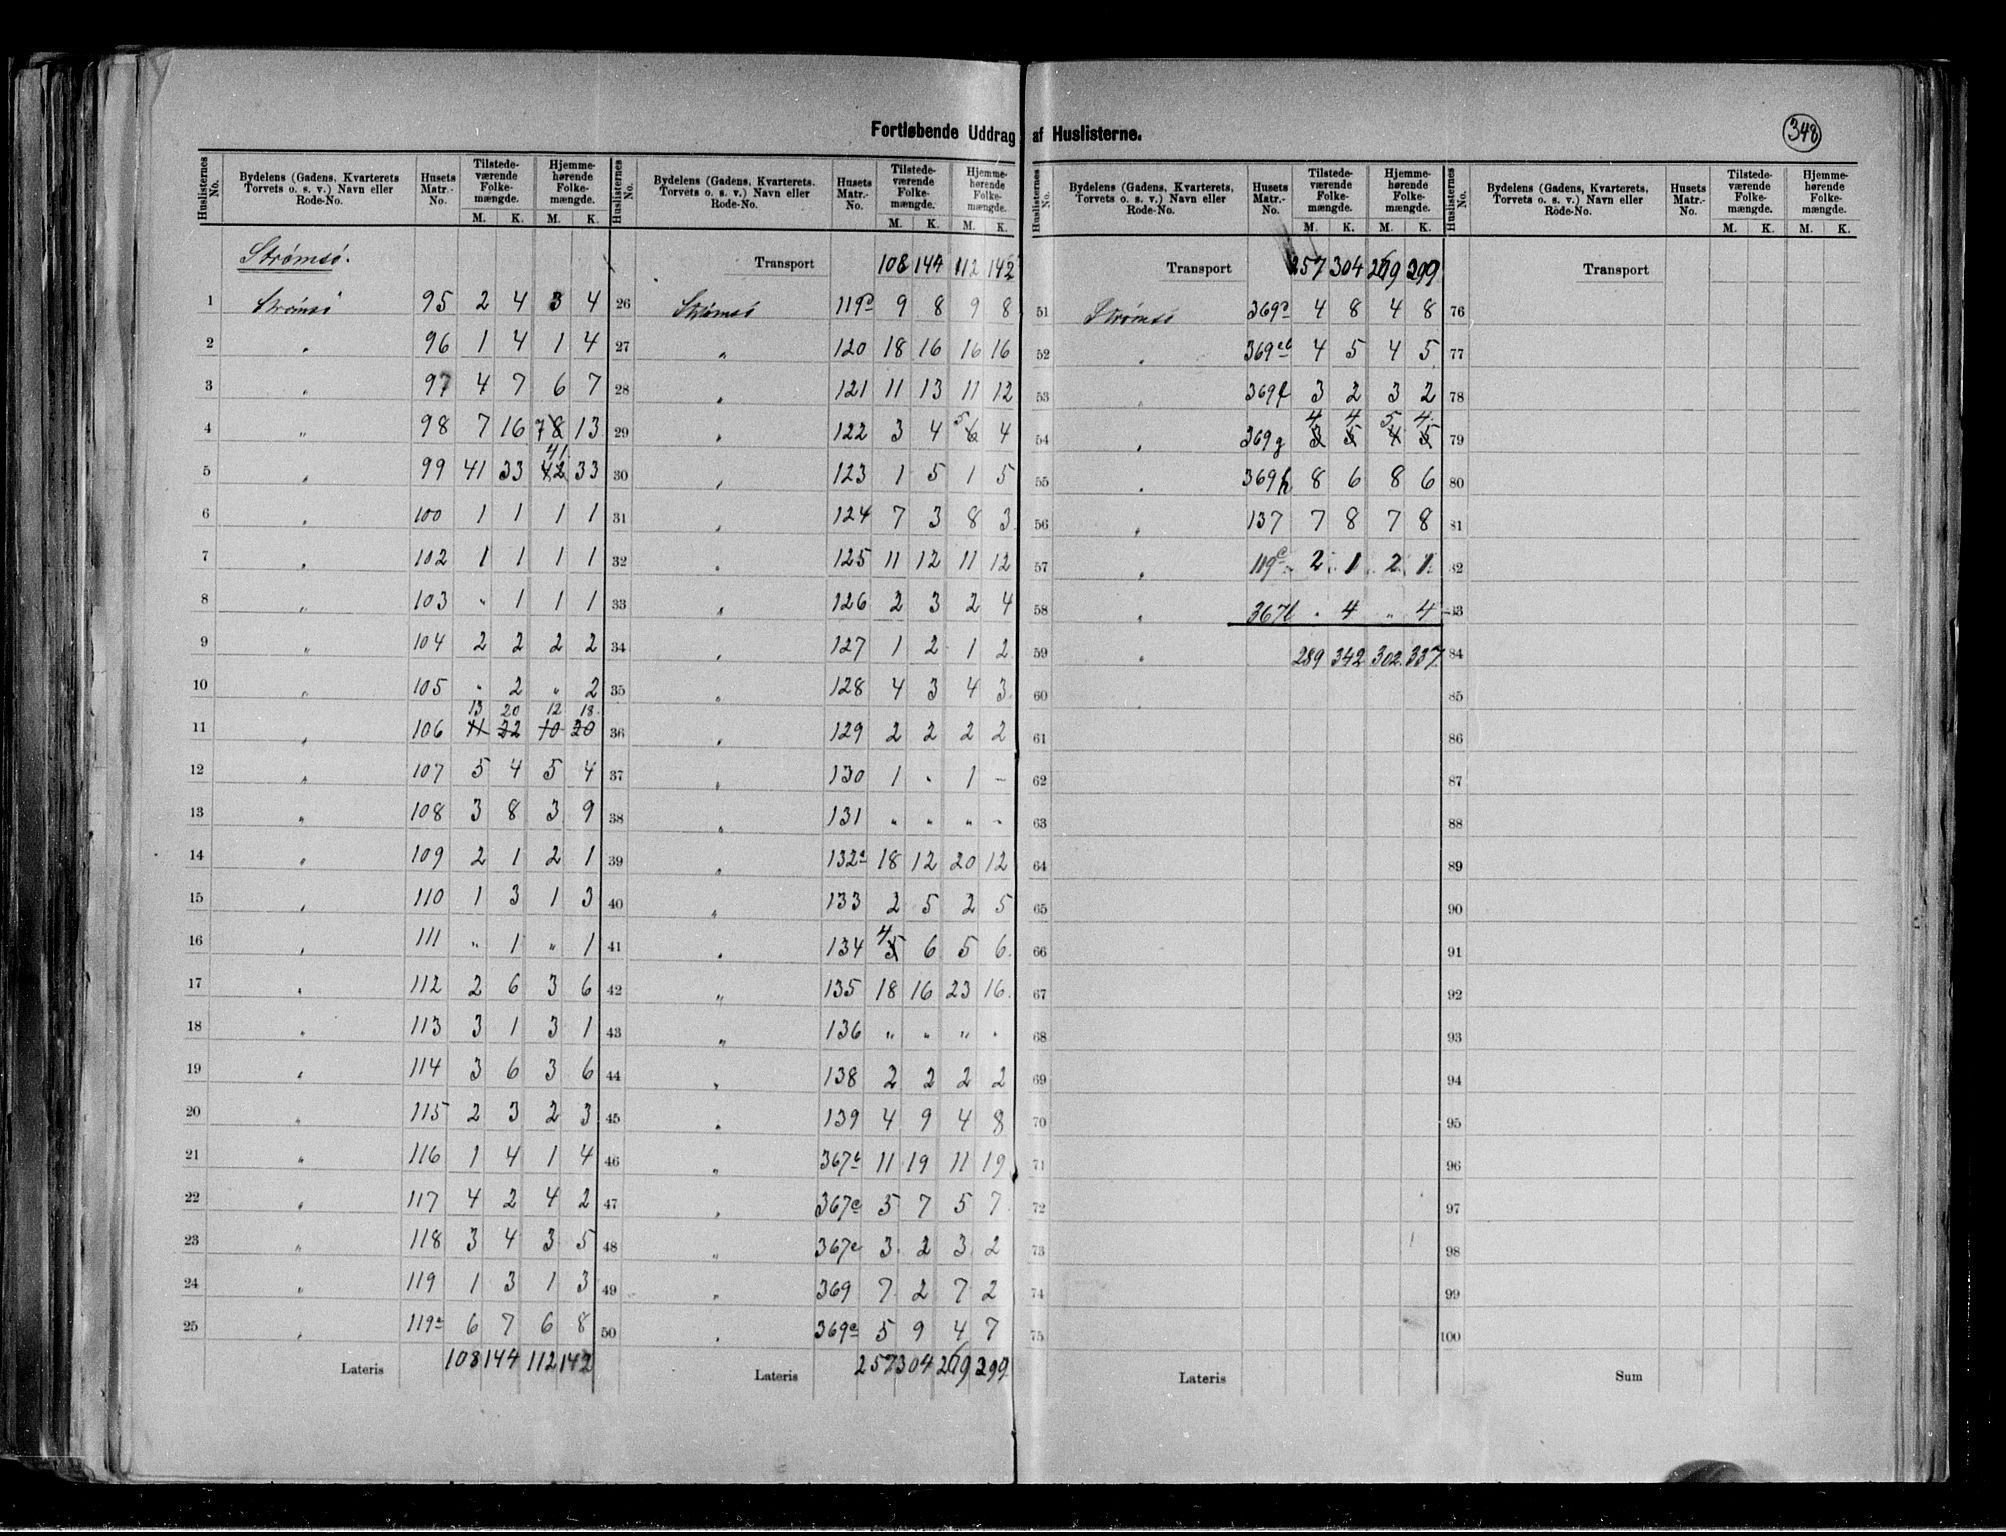 Fortløbende Uddrag af Huslisterne.
348
Huslisternes No. Bydelens (Gadens, Kvarterets Torvets o. s. v.) Navn eller Rode-No. Husets Matr.-No. Tilstedeværende Folkemængde. M. K. Hjemmehørende Folkemængde. M. K.
Strømsø.
1 Strømsø 95 2 4 3 4
2 " 96 1 4 1 4
3 " 97 4 7 6 7
4 " 98 7 16 7 8 13
5 " 99 41 33 41 42 33
6 " 100 1 1 1 1
7 " 102 1 1 1 1
8 " 103 " 1 1 1
9 " 104 2 2 2 2
10 " 105 " 2 " 2
13 20 12 18
11 " 106 11 22 10 20
12 " 107 5 4 5 4
13 " 108 3 8 3 9
14 " 109 2 1 2 1
15 " 110 1 3 1 3
16 " 111 " 1 " 1
17 " 112 2 6 3 6
18 " 113 3 1 3 1
19 " 114 3 6 3 6
20 " 115 2 3 2 3
21 " 116 1 4 1 4
22 " 117 4 2 4 2
23 " 118 3 4 3 5
24 " 119 1 3 1 3
25 " 119a 6 7 6 8
Lateris 108 144 112 142
Huslisternes No. Bydelens (Gadens, Kvarterets. Torvets o. s. v.) Navn eller Rode-No. Husets Matr.-No. Tilstedeværende Folkemængde. M. K. Hjemmehørende Folkemængde. M. K.
Transport 108 144 112 142
26 Strømsø 119 9 8 9 8
27 " 120 18 16 16 16
28 " 121 11 13 11 12
29 " 122 3 4 5 6 4
30 " 123 1 5 1 5
31 " 124 7 3 8 3
32 " 125 11 12 11 12
33 " 126 2 3 2 4
34 " 127 1 2 1 2
35 " 128 4 3 4 3
36 " 129 2 2 2 2
37 " 130 1 " 1 -
38 " 131 " " " "
39 " 132a 18 12 20 12
40 " 133 2 5 2 5
41 " 134 4 5 6 5 6
42 " 135 18 16 23 16
43 " 136 " " " "
44 " 138 2 2 2 2
45 " 139 4 9 4 8
46 " 367 11 19 11 19
47 " 367 5 7 5 7
48 " 367 3 2 3 2
49 " 369 7 2 7 2
50 " 369 5 9 4 7
Lateris 257 304 269 299
Huslisternes No. Bydelens (Gadens, Kvarterets, Torvets o. s. v.) Navn eller Rode-No. Husets Matr.-No. Tilstedeværende Folkemængde. M. K. Hjemmehørende Folkemængde. M. K.
Transport 257 304 269 299
51 Strømsø 369 4 8 4 8
52 " 369 4 5 4 5
53 " 369f 3 2 3 2
4 4 5 4
54 " 369g 3 5 4 5
55 " 369h 8 6 8 6
56 " 137 7 8 7 8
57 " 119c 2 1 2 1
58 " 367b " 4 " 4
59 " 289 342 302 337
60
61
62
63
64
65
66
67
68
69
70
71
72
73
74
75
Lateris
Huslisternes No. Bydelens (Gadens, Kvarterets, Torvets o. s. v.) Navn eller Rode-No. Husets Matr.-No. Tilstedeværende Folkemængde. M. K. Hjemmehørende Folkemængde. M. K.
Transport
76
77
78
79
80
81
82
83
84
85
86
87
88
89
90
91
92
93
94
95
96
97
98
99
100
Sum